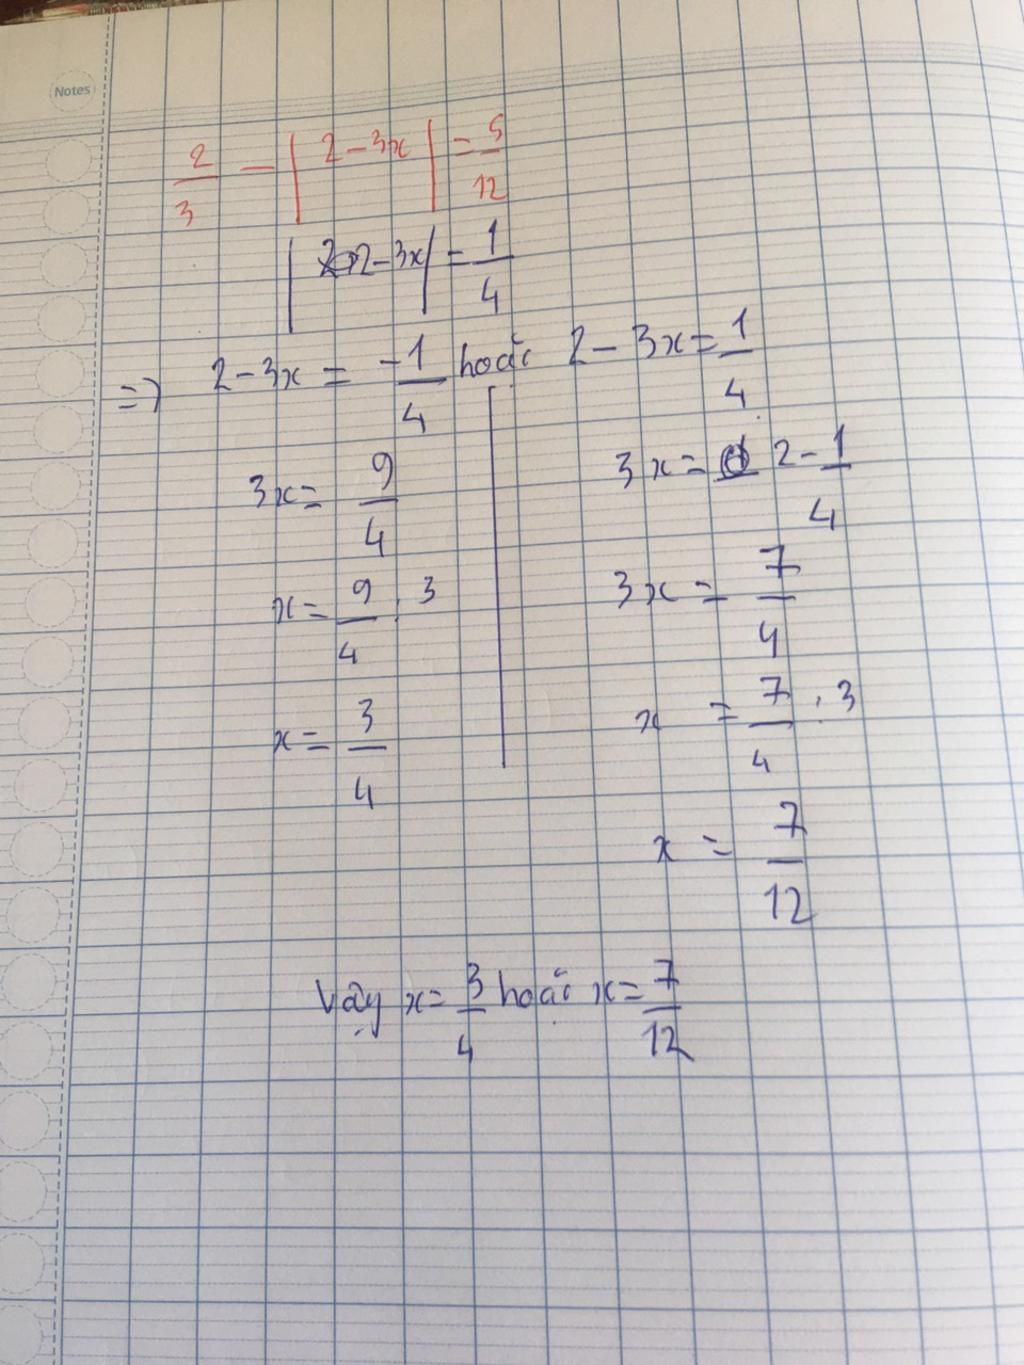 Notes
2/3 - |2 - 3x| = 5/12
|2 - 3x| = 1/4
=> 2 - 3x = -1/4 hoặc 2 - 3x = 1/4
3x = 9/4
3x = 2 - 1/4
x = 9/4 . 3
3x = 7/4
x = 3/4
x = 7/4 . 3
x = 7/12
Vậy x = 3/4 hoặc x = 7/12